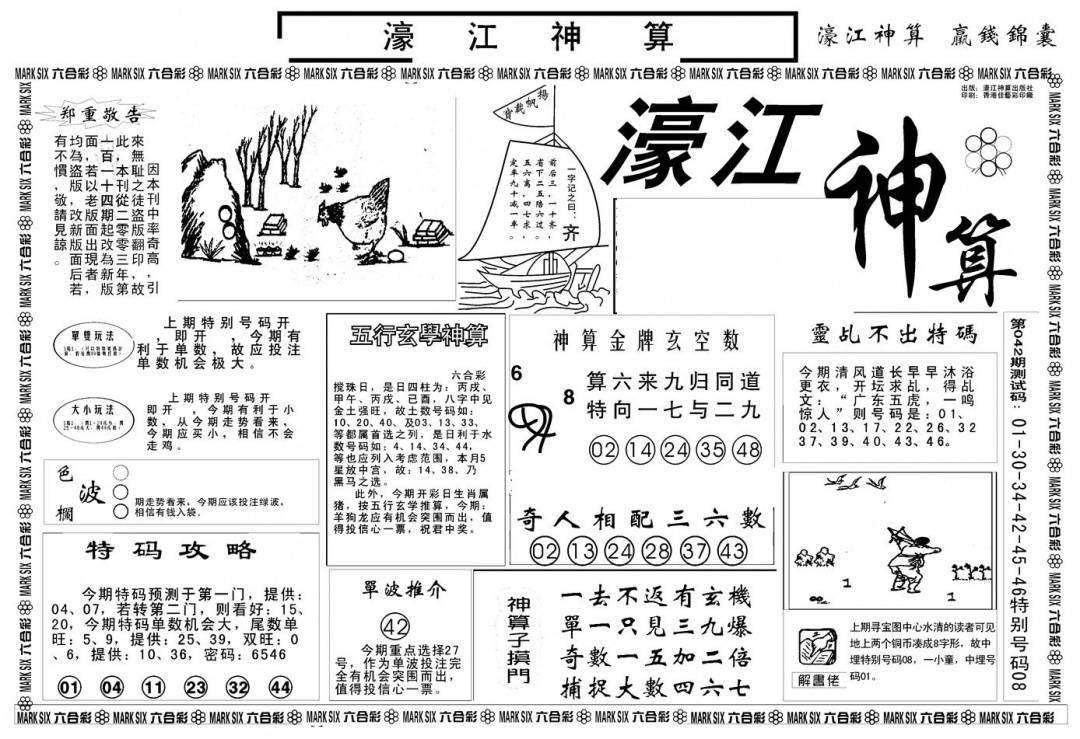 濠江神算
濠江神算 贏錢錦囊
MARK SIX 六合彩 MARK SIX 六合彩 MARK SIX 六合彩 MARK SIX 六合彩 MARK SIX 六合彩 MARK SIX 六合彩 MARK SIX 六合彩 MARK SIX 六合彩 MARK SIX 六合彩 MARK SIX 六合彩 MARK SIX 六合彩
出版：濠江神算出版社
印刷：香港佳藝彩印廠
郑重敬告
因本刊中奇高，引
來耻之徒盜率翻印，故
此本刊從二版零年第
一百若十四期起改三新版
面，一以老版面出現為者，
均為盜版，改新版面后若
有不慣，敬請見諒。
揚帆載背
一字记之曰：齐
前后三，一十齐，
省下二五陪六过。
五六离，四七求，
定车九十减一半。
濠江神算
單雙玩法
上期特别号码开
，即开　，今期有
利于单数，故应投注
单数机会极大。
大小玩法
上期特别号码开
即开　，今期有利于小
数，从今期走势看来，
今期应买小，相信不会
走鸡。
色波欄
期走势看来，今期应该投注绿波，
相信有钱入袋。
特码攻略
今期特码预测于第一门，提供：
04、07，若转第二门，则看好：15、
20，今期特码单数机会大，尾数单
旺：5、9，提供：25、39，双旺：0
、6，提供：10、36，密码：6546
01 04 11 23 32 44
五行玄學神算
六合彩
搅珠日，是日四柱为：丙戌、
甲午、丙戌、己酉，八字中见
金土强旺，故土数号码如：
10、20、40、及03、13、33、
等都属首选之列，是日利于水
数号码如：4、14、34、44，
等也应列入考虑范围，本月5
星放中宫，故：14、38、乃
黑马之选。
此外，今期开彩日生肖属
猪，按五行玄学推算，今期：
羊狗龙应有机会突围而出，值
得投信心一票，祝君中奖。
單波推介
42
今期重点选择27
号，作为单波投注完
全有机会突围而出，
值得投信心一票。
神算金牌玄空数
6
8
算六来九归同道
特向一七与二九
02 14 24 35 48
奇人相配三六數
02 13 24 28 37 43
神算子摸門
一去不返有玄機
單一只見三九爆
奇數一五加二倍
捕捉大數四六七
靈乩不出特碼
今期清风道长早早沐浴
更衣，开坛求乩，得乩
文：“广东五虎，一鸣
惊人”则号码是：01、
02、13、17、22、26、32
37、39、40、43、46。
1
1
解書佬
上期寻宝图中心水清的读者可见
地上两个铜币凑成8字形，故中
埋特别号码08，一小童，中埋号
码01。
第042期测试码：01-30-34-42-45-46特别号码08
MARK SIX 六合彩 MARK SIX 六合彩 MARK SIX 六合彩 MARK SIX 六合彩 MARK SIX 六合彩 MARK SIX 六合彩 MARK SIX 六合彩 MARK SIX 六合彩 MARK SIX 六合彩 MARK SIX 六合彩 MARK SIX 六合彩